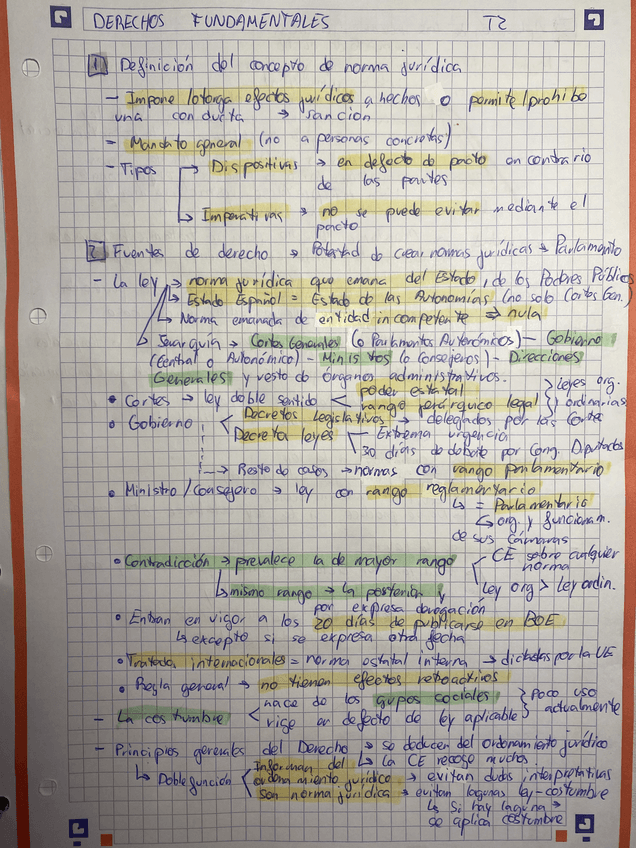 DERECHOS FUNDAMENTALES T2
1 Definición del concepto de norma jurídica
- Impone/otorga efectos jurídicos a hechos o permite/prohíbe
una conducta → sanción
- Mandato general (no a personas concretas)
- Tipos → Dispositivas → en defecto de pacto en contrario
de las partes
→ Imperativas → no se puede evitar mediante el
pacto
2 Fuentes de derecho → Potestad de crear normas jurídicas → Parlamento
- La ley → norma jurídica que emana del Estado, de los Poderes Públicos
→ Estado Español = Estado de las Autonomías (no solo Cortes Gen.)
→ Norma emanada de entidad incompetente → nula
→ Jerarquía → Cortes Generales (o Parlamentos Autonómicos) - Gobierno
(Central o Autonómico) - Ministros (o Consejeros) - Direcciones
Generales y resto de órganos administrativos.
• Cortes → ley doble sentido < poder estatal
rango jerárquico legal } Leyes org.
} ordinarias
• Gobierno < Decretos legislativos → delegados por las Cortes
Decreto leyes - Extrema urgencia
30 días debate por Cong. Diputados
→ Resto de casos → normas con rango parlamentario
• Ministro/Consejero → ley con rango reglamentario
↳ = Parlamentario
↳ org. y funcionam.
de sus Cámaras
• Contradicción → prevalece la de mayor rango < CE sobre cualquier
norma
Ley org > Ley ordin.
↳ mismo rango → la posterior y
por expresa derogación
• Entran en vigor a los 20 días de publicarse en BOE
↳ excepto si se expresa otra fecha
• Tratados internacionales = norma estatal interna → dictadas por la UE
• Regla general → no tienen efectos retroactivos
- La costumbre < nace de los grupos sociales
rige en defecto de ley aplicable } poco uso
actualmente
- Principios generales del Derecho → se deducen del ordenamiento jurídico
↳ la CE recoge muchos
↳ Doble función < Informan del
ordenamiento jurídico → evitan dudas interpretativas
son norma jurídica → evitan lagunas ley-costumbre
↳ Si hay laguna →
se aplica costumbre